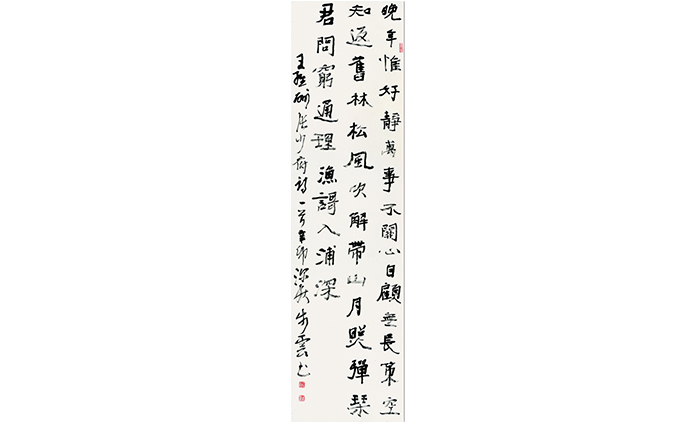 晚年惟好靜萬事不關心自顧無長策空
知返舊林松風吹解帶山月照彈琴
君問窮通理漁謌入浦深
王維酬張少府詩一首 深秋 步雲